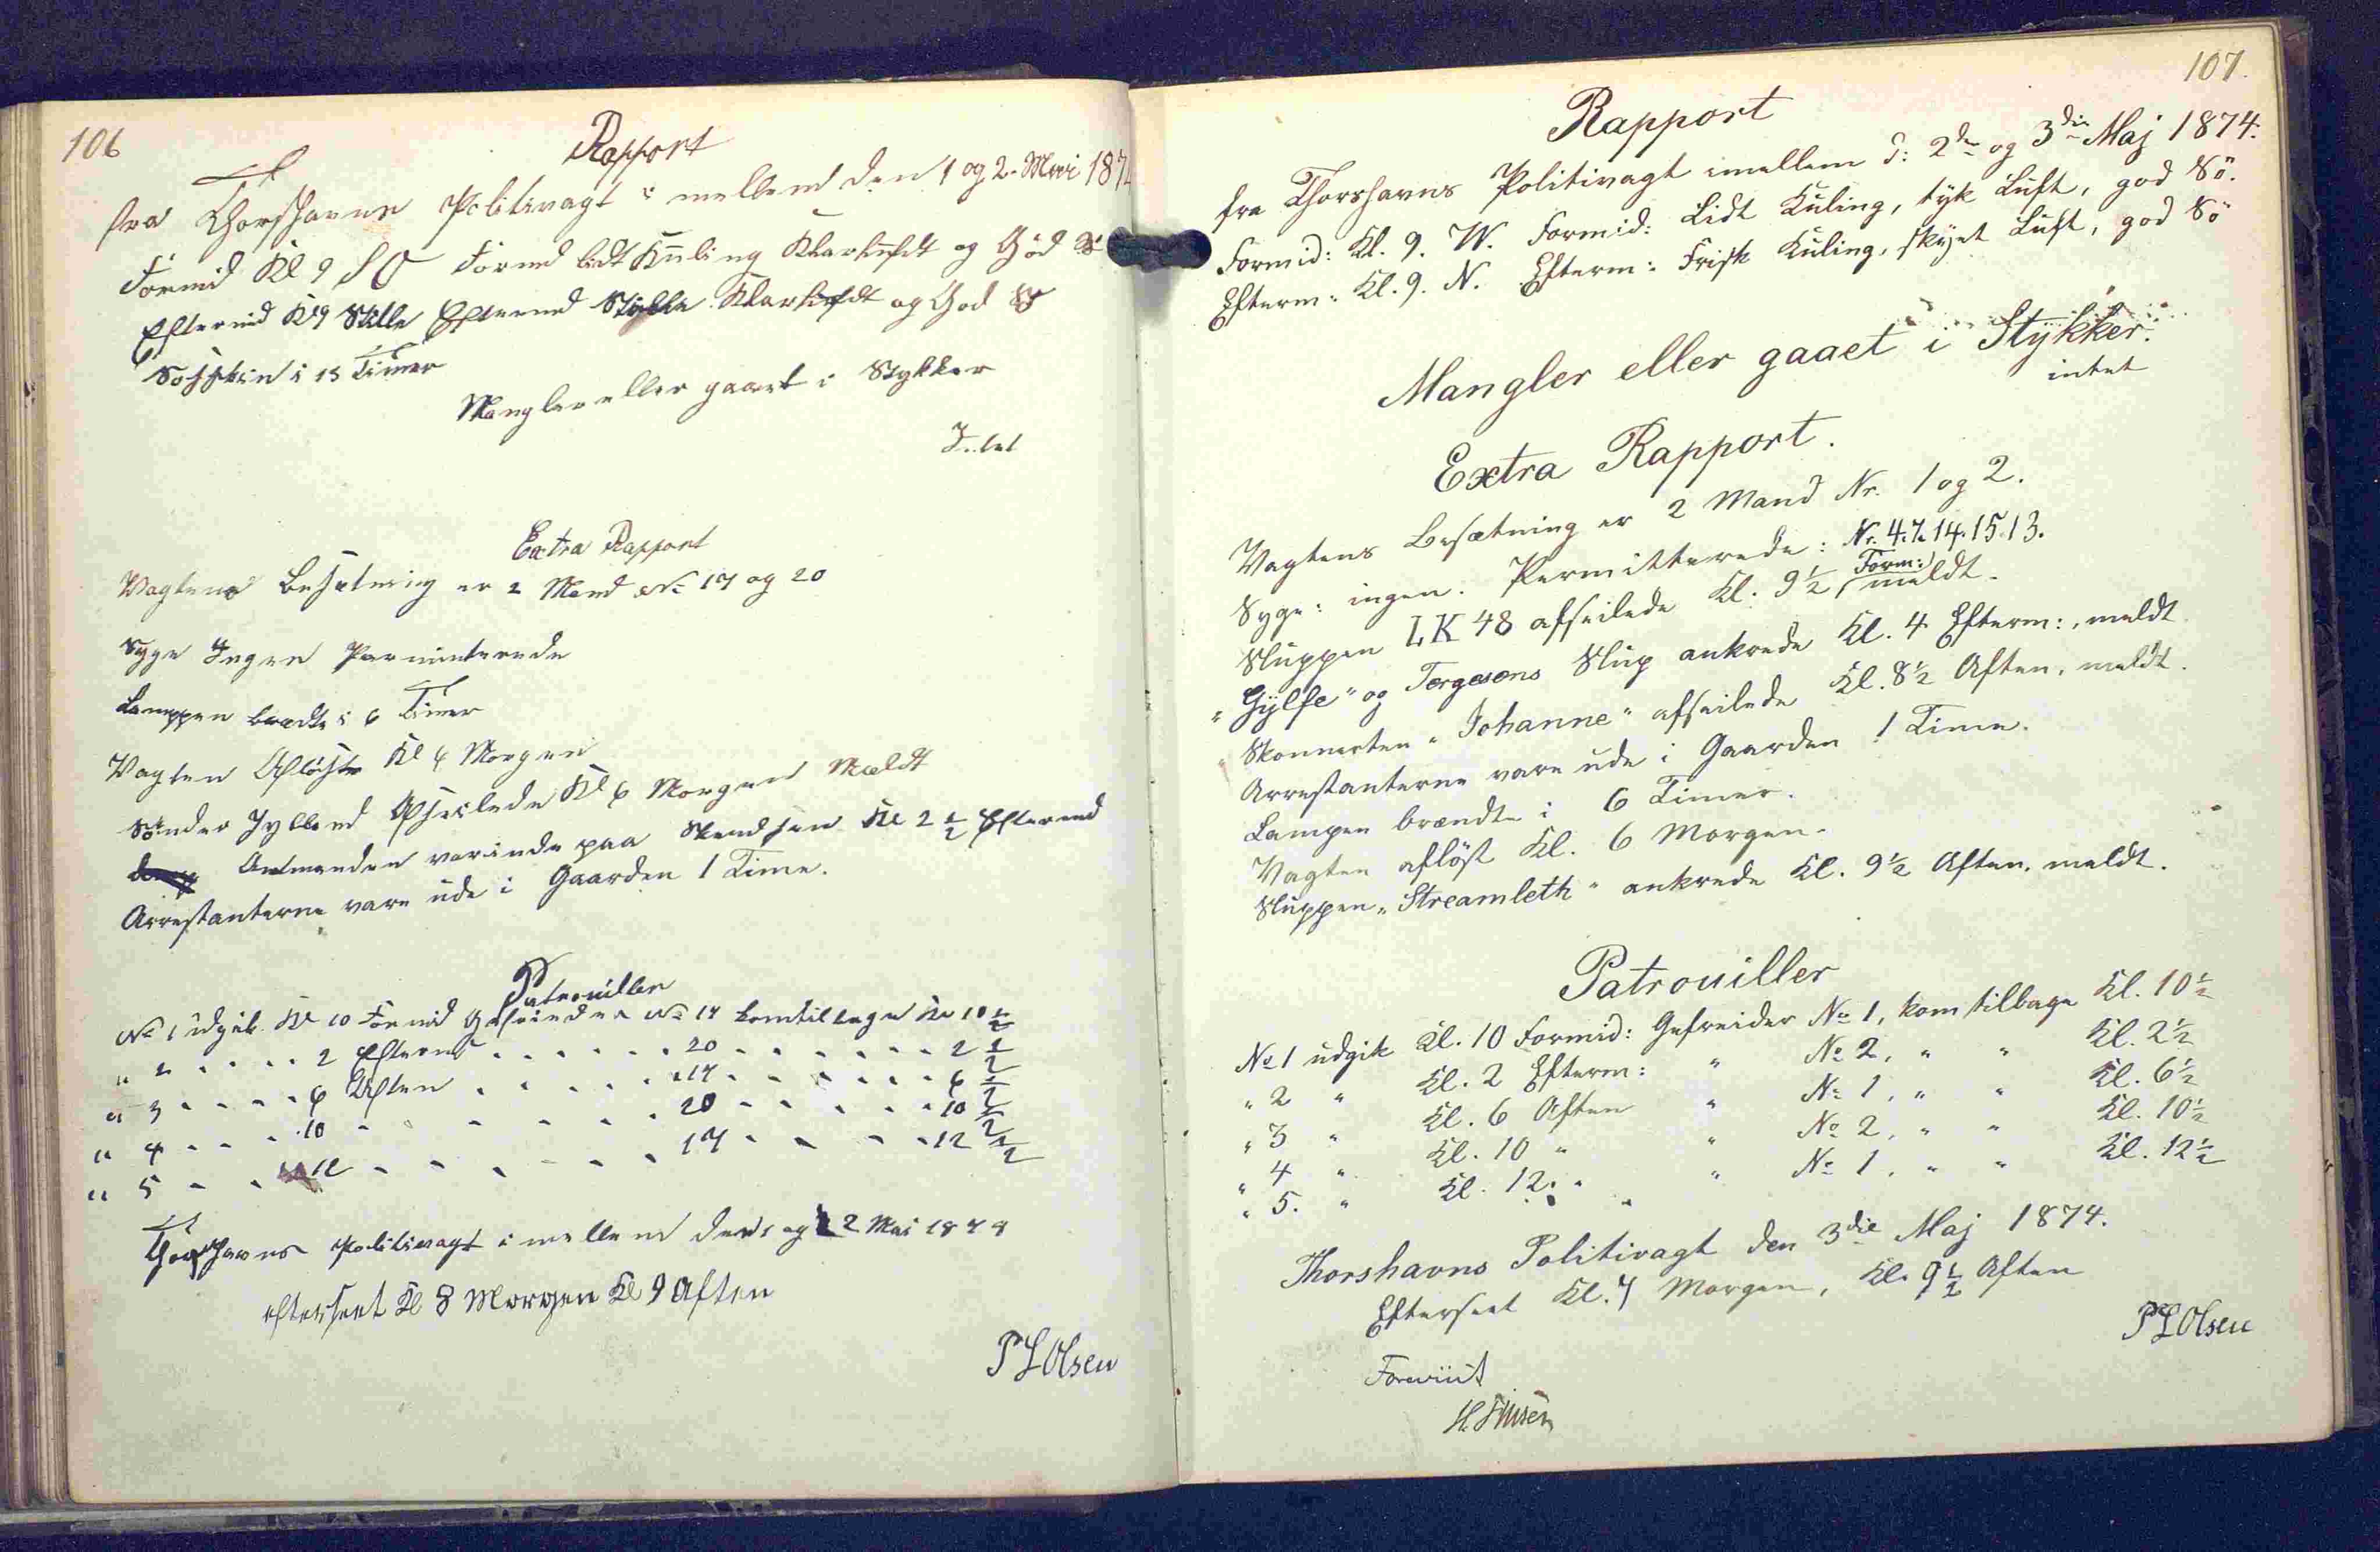 106
Rapport
fra Thorshavns Politivagt i mellem den 1 og 2. Mai 187
Formid Kl 9 SO Formd lidt Kuling Klarluft og God Sö
Eftermid Kl 9 Stille Eftermd Stille Klarluft og God Sö
Solskin i 13 Timer
Mangler eller gaaet i Stykker
Intet
Extra Rapport
Vagtens Besætning er 2 Mand No 17 og 20
Syge Ingen Permitterede
Lampen brædte i 6 Timer
Vagten Aflöste Kl 6 Morgen
Sönder Jylland Afseilede Kl 6 Morgen Meldt
Amtmanden var inde paa Skandsen Kl 2 1/2 Eftermd
Arrestanterne vare ude i Gaarden 1 Time.
Patrouiller
No 1 udgik Kl 10 Formid Gefreider No 17 kom tilbage Kl 10 1/2
" 2 " " 2 Efterm " " 20 " " 2 1/2
" 3 " " 6 Aften " " 17 " " 6 1/2
" 4 " " 10 " " " 20 " " 10 1/2
" 5 " " 12 " " " 17 " " 12 1/2
Thorshavns Politivagt i mellem den 1 og 2 Mai 1874
efterseet Kl 8 Morgen Kl 9 Aften
P L Olsen
107.
Rapport
fra Thorshavns Politivagt imellem d: 2den og 3die Maj 1874.
Formid: Kl. 9. W. Formid: Lidt Kuling, tyk Luft, god Sö.
Efterm: Kl. 9. N. Efterm: Frisk Kuling, skyet Luft, god Sö
Mangler eller gaaet i Stykker.
intet
Extra Rapport.
Vagtens Besætning er 2 Mand Nr. 1 og 2.
Syge: ingen. Permitterede: Nr. 4. 7. 14. 15. 13.
Sluppen LK 48 afseilede Kl. 9 1/2 Form: meldt.
"Gylfe" og Torgesens Slup ankrede Kl. 4 Efterm:, meldt
Skonnerten "Johanne" afseilede Kl. 8 1/2 Aften, meldt.
Arrestanterne vare ude i Gaarden 1 Time.
Lampen brændte i 6 Timer.
Vagten aflöst Kl. 6 Morgen.
Sluppen "Streamleth" ankrede Kl. 9 1/2 Aften. meldt.
Patrouiller
No 1 udgik Kl. 10 Formid: Gefreider No 1, kom tilbage Kl. 10 1/2
" 2 " Kl. 2 Efterm: " No 2, " " Kl. 2 1/2
" 3 " Kl. 6 Aften " No 1, " " Kl. 6 1/2
" 4 " Kl. 10 " " No 2, " " Kl. 10 1/2
" 5. " Kl. 12. " " No 1. " " Kl. 12 1/2
Thorshavns Politivagt den 3die Maj 1874.
Efterseet Kl. 7 Morgen, Kl. 9 1/2 Aften
P L Olsen
Foreviist